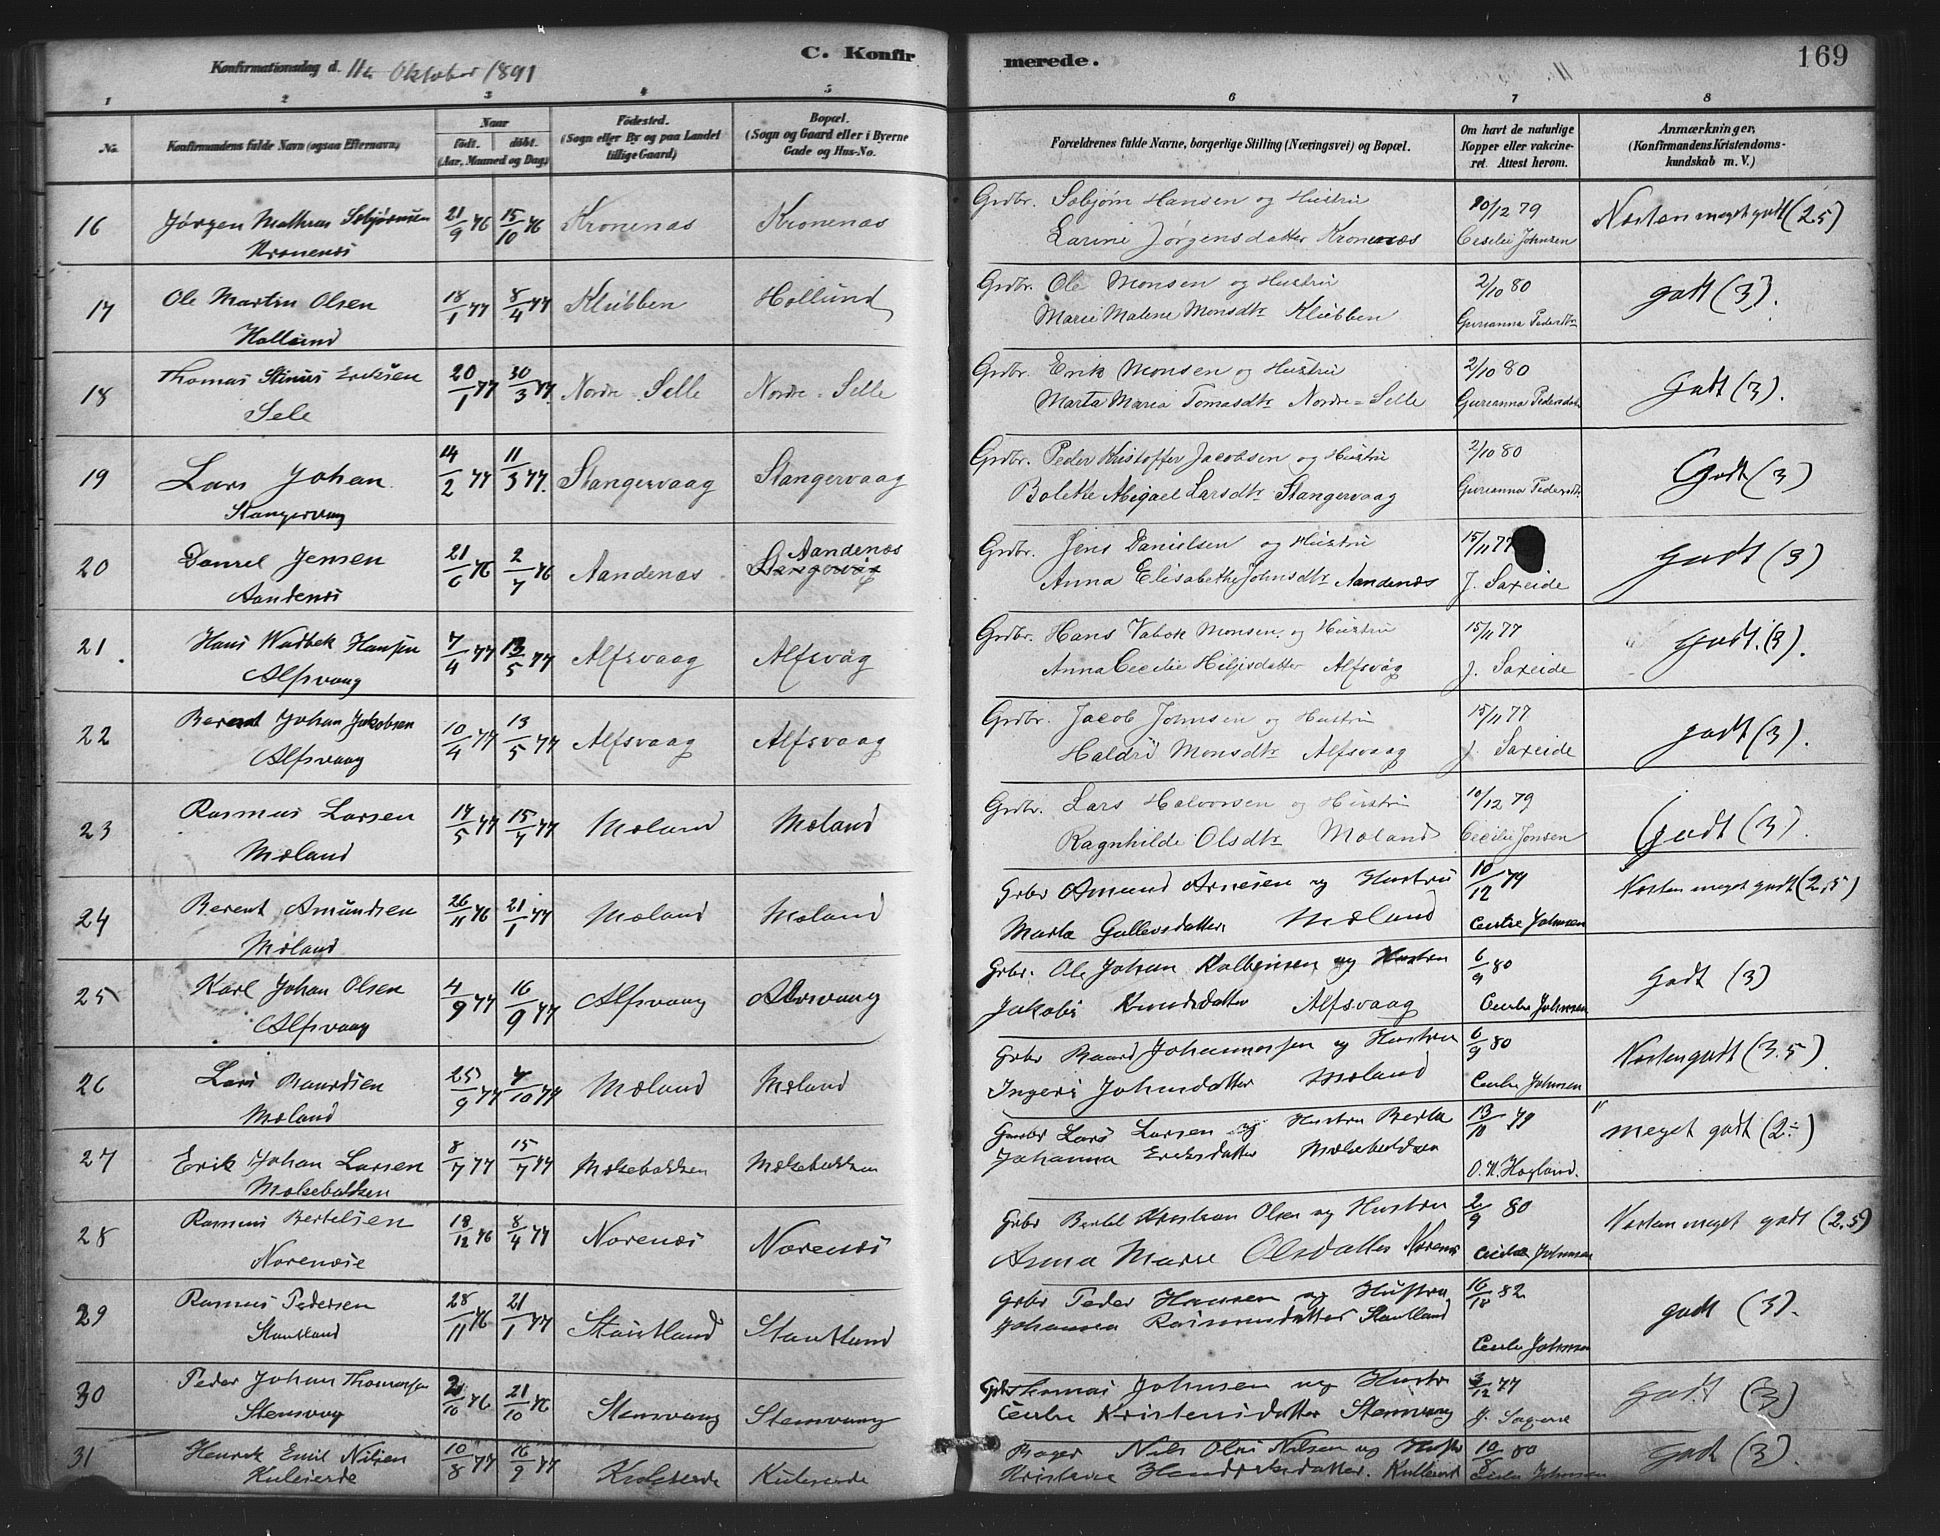 C. Konfirmerede. 169
Konfirmationsdag d. 11te Oktober 1891
1 2 3 4 5 6 7 8
No.
Konfirmandens fulde Navn (ogsaa Efternavn)
Naar
født. døbt.
(Aar, Maaned og Dag)
Fødested.
(Sogn eller By og paa Landet
tillige Gaard)
Bopæl.
(Sogn og Gaard eller i Byerne
Gade og Hus-No.
Forældrenes fulde Navne, borgerlige Stilling (Næringsvei) og Bopæl.
Om havt de naturlige
Kopper eller vakcine-
ret. Attest herom.
Anmærkninger,
(Konfirmandens Kristendoms-
kundskab m. V.)
16 Jørgen Mathias Sebjørnsen 21/9 76 15/10 76 Kronenæs Kronenæs Grdbr. Sebjørn Hansen og Hustru 10/12 79 Næsten meget godt (2.5)
Kronenæs Larine Jørgensdatter Kronenæs Cesilie Johnsen
17 Ole Martin Olsen 18/1 77 8/4 77 Klubben Hollund Grdbr. Ole Monsen og Hustru 2/10 80 godt (3).
Hollund Marie Malene Monsdtr Klubben Gurianna Pedersdtr
18 Thomas Stinius Eriksen 20/1 77 30/3 77. Nordre-Selle Nordre-Selle Grdbr. Erik Monsen og Hustru 2/10 80 Godt (3).
Sele Marta Maria Tomasdtr Nordre-Selle Gurianna Pedersdtr
19 Lars Johan 14/2 77 11/3 77. Stangervaag Stangervaag Grdbr. Peder Kristoffer Jacobsen og Hustru 2/10 80 Godt (3)
Stangervaag Bolette Abigael Larsdtr Stangervaag Gurianna Pedersdtr
20 Daniel Jensen 21/6 76 2/7 76 Aandenæs Aandenæs Grdbr. Jens Danielsen og Hustru 15/11 77 Godt (3)
Aandenæs Anna Elisabethe Johnsdtr Aandenæs J. Saxeide
21 Hans Wadbek Hansen 7/4 77 13/5 77 Alfsvaag Alfsvåg Grdbr. Hans Vabek Monsen og Hustru 15/11 77 godt. (3).
Alfsvaag Anna Cecilie Helgesdatter Alfsvåg J. Saxeide
22 Berent Johan Jakobsen 10/4 77 13/5 77 Alfsvaag Alfsvaag Grdbr. Jacob Johnsen og Hustru 15/11 77 godt (3).
Alfsvaag Haldri Monsdtr Alfsvaag J. Saxeide
23 Rasmus Larsen 14/5 77 15/7 77 Mæland Mæland Grdbr. Lars Halvorsen og Hustru 10/12 79 Godt (3).
Mæland Ragnhilde Olsdtr Mæland Cecilie Jonsen
24 Berent Amundsen 26/11 76 21/1 77 Mæland Mæland Grbr Amund Arnesen og Hustru 10/12 79 Næsten meget godt (2,5)
Mæland Marta Gullevsdatter Mæland Cecilie Johnsen
25 Karl Johan Olsen 4/9 77 16/9 77 Alfsvaag Alfsvaag Grbr. Ole Johan Kolbensen og Hustru 6/9 80 Godt (3)
Alfsvaag Jakobi Knudsdatter Alfsvaag Cecilie Johnsen
26 Lars Baardsen 25/9 77 7/10 77 Mæland Mæland Grbr Baard Johannessen og Hustru 6/9 80 Næsten godt (3.5).
Mæland Ingeri Johnsdatter Mæland Cecilie Johnsen
27 Erik Johan Larsen 8/7 77 15/7 77 Mælsebakken Mælsebakken Gaardbr Lars Larsen og Hustru Berta 13/10 79 " meget godt (2÷)
Mælsebakken Johanna Eriksdatter Mælsebakken O. H. Hogland.
28 Rasmus Bertelsen 18/12 76 8/4 77 Norenæs Norenæs Grbr Bertel Kristian Olsen og Hustru 2/9 80 Næsten meget godt (2.5)
Norenæs Anna Marie Olsdatter Norenæs Cecilie Johnsen
29 Rasmus Pedersen 28/11 76 21/1 77 Stautland Stautland Grbr Peder Hansen og Hustru 16/10 82 godt (3).
Stautland Johanna Rasmusdatter Stautland Cecilie Johnsen
30 Peder Johan Thomassen 2/10 76 21/10 76 Stensvaag Stensvaag Grbr Thomas Johnsen og Hustru 3/12 77 Godt (3)
Stensvaag Cecilie Kristensdatter Stensvaag J.
31 Henrik Emil Nilsen 10/8 77 16/9 77 Kuleseide Kuleseide Bager Nils Olai Nilsen og Hustr 10/8 80 godt (3).
Kuleseide Kristense Hendriksdatter. Kulleseid Cecilie Johnsen